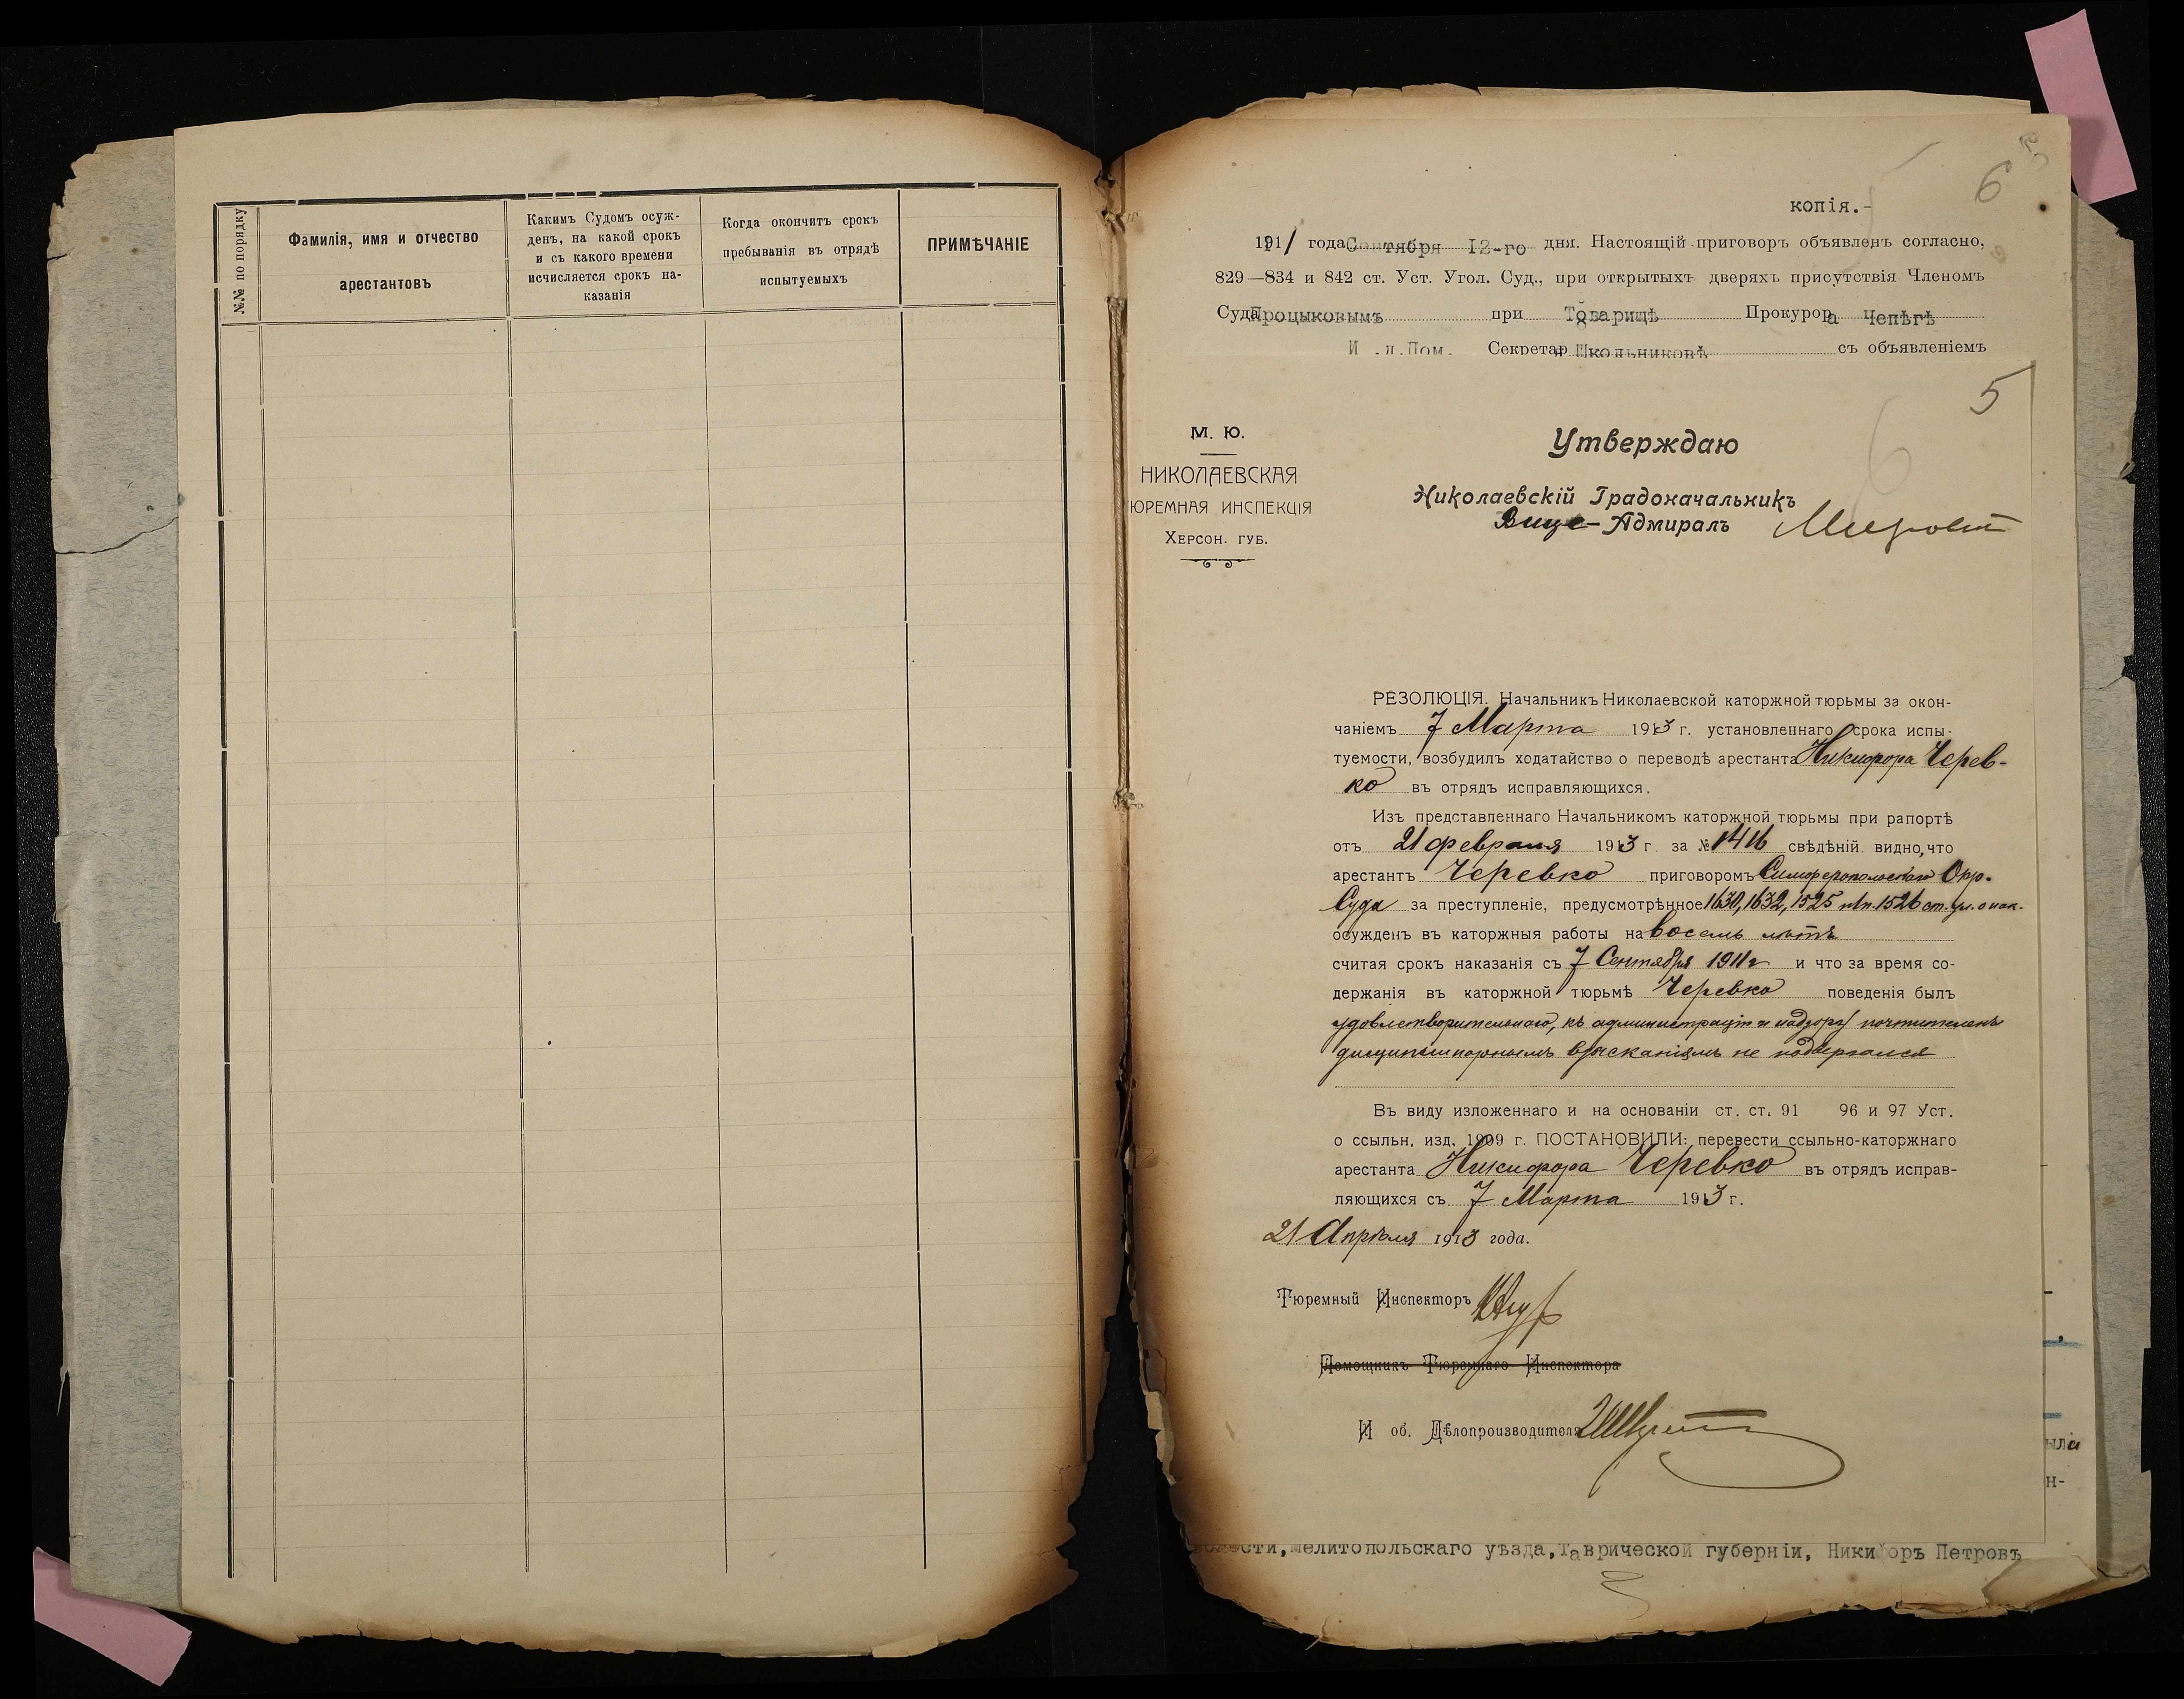 №№ по порядку
Фамилія, имя и отчество
арестантовъ
Какимъ Судомъ осуж-
денъ, на какой срокъ
и съ какого времени
исчисляется срокъ на-
казанія
Когда окончитъ срокъ
пребыванія въ отрядѣ
испытуемыхъ
ПРИМѢЧАНІЕ
6
копія.-
1911 года Сентября 12-го дня. Настоящій приговоръ объявленъ согласно,
829—834 и 842 ст. Уст. Угол. Суд., при открытыхъ дверяхъ присутствія Членомъ
Суда Троцыковымъ при Товарищѣ Прокурора Чепѣгѣ
И .д.Пом. Секретаря Школьниковѣ съ объявленіемъ
5
6
М. Ю.
НИКОЛАЕВСКАЯ
ЮРЕМНАЯ ИНСПЕКЦІЯ
ХЕРСОН. ГУБ.
Утверждаю
Николаевскій Градоначальникъ
Вице-Адмиралъ
РЕЗОЛЮЦІЯ. Начальникъ Николаевской каторжной тюрьмы за окон-
чаніемъ 7 Марта 1913 г. установленнаго срока испы-
туемости, возбудилъ ходатайство о переводѣ арестанта Никифора Черев-
ко въ отрядъ исправляющихся.
Изъ представленнаго Начальникомъ каторжной тюрьмы при рапортѣ
отъ 21 февраля 1913 г. за № 1416 свѣдѣній видно, что
арестантъ Черевко приговоромъ Симферопольскаго Окр.
Суда за преступленіе, предусмотрѣнное 1630, 1632, 1525 и 1п. 1526 ст. ул. о нак.
осужденъ въ каторжныя работы на восемь лѣтъ
считая срокъ наказанія съ 7 Сентября 1911 г и что за время со-
держанія въ каторжной тюрьмѣ Черевко поведенія былъ
удовлетворительнаго, къ администраціи и надзору почтителенъ
дисциплинарнымъ взысканіямъ не подвергался
Въ виду изложеннаго и на основаніи ст. ст. 91 96 и 97 Уст.
о ссыльн. изд. 1909 г. ПОСТАНОВИЛИ: перевести ссыльно-каторжнаго
арестанта Никифора Черевко въ отрядъ исправ-
ляющихся съ 7 Марта 1913 г.
21 Апрѣля 1913 года.
Тюремный Инспекторъ
Помощникъ Тюремнаго Инспектора
И об. Дѣлопроизводителя
ыла
н-
волости, Мелитопольскаго уѣзда, Таврической губерніи, Никифоръ Петровъ